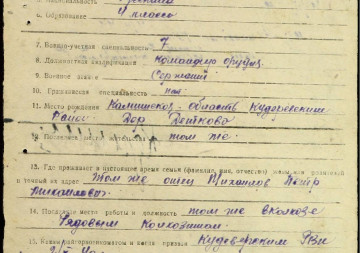 5. Национальность
6. Образование 4 класса
7. Военно-учетная специальность 7
8. Должностная квалификация командир орудия
9. Военное звание Сержант
10. Гражданская специальность
11. Место рождения область Кудеверским
Район Дер
12. том же.
13. Где проживает в настоящее время семья (фамилия, имя, отчество)
и точный их адрес том же отец Михайлов Петр
Михайлович
14. Последнее место работы и должность том же в колхозе
Рядовым Колхозником.
15. Каким райвоенкоматом и когда призван Кудеверским РВК